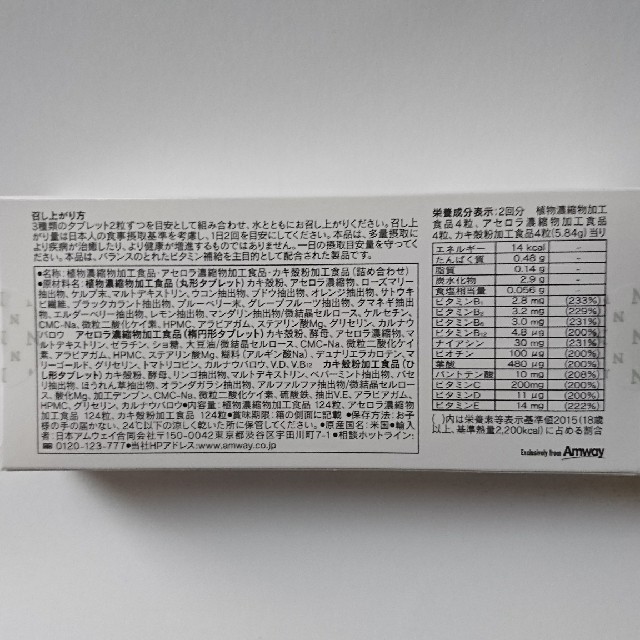 召し上がり方
3種類のタブレット2粒ずつを目安として組み合わせ、水とともにお召し上がりください。召し上
がり量は日本人の食事摂取基準を考慮し、1日2回を目安にしてください。本品は、多量摂取に
より疾病が治癒したり、より健康が増進するものではありません。一日の摂取目安量を守ってく
ださい。本品は、バランスのとれたビタミン補給を主目的として配合された製品です。
●名称:植物濃縮物加工食品・アセロラ濃縮物加工食品・カキ殻粉加工食品(詰め合わせ)
●原材料名:植物濃縮物加工食品(丸形タブレット)カキ殻粉、アセロラ濃縮物、ローズマリー
抽出物、ケルプ末、マルトデキストリン、ウコン抽出物、ブドウ抽出物、オレンジ抽出物、サトウキ
ビ繊維、ブラックカラント抽出物、ブルーベリー末、グレープフルーツ抽出物、タマネギ抽出
物、エルダーベリー抽出物、レモン抽出物、マンダリン抽出物/微結晶セルロース、ケルセチン、
CMC-Na、微粒二酸化ケイ素、HPMC、アラビアガム、ステアリン酸Mg、グリセリン、カルナウ
バロウ アセロラ濃縮物加工食品(楕円形タブレット)カキ殻粉、酵母、アセロラ濃縮物、マ
ルトデキストリン、ゼラチン、ショ糖、大豆油/微結晶セルロース、CMC-Na、微粒二酸化ケイ
素、アラビアガム、HPMC、ステアリン酸Mg、糊料(アルギン酸Na)、デュナリエラカロテン、マ
リーゴールド、グリセリン、トマトリコピン、カルナウバロウ、V.D、V.B12 カキ殻粉加工食品(ひ
し形タブレット)カキ殻粉、酵母、リンゴ抽出物、マルトデキストリン、ペパーミント抽出物、パセ
リ抽出物、ほうれん草抽出物、オランダガラシ抽出物、アルファルファ抽出物/微結晶セルロー
ス、酸化Mg、加工デンプン、CMC-Na、微粒二酸化ケイ素、硫酸鉄、抽出V.E、アラビアガム、
HPMC、グリセリン、カルナウバロウ●内容量:植物濃縮物加工食品 124粒、アセロラ濃縮物加
工食品 124粒、カキ殻粉加工食品 124粒●賞味期限:箱の側面に記載 ●保存方法:お子
様の手の届かない、24℃以下の涼しく乾いた所に保管してください。●原産国名:米国●輸入
者:日本アムウェイ合同会社〒150-0042東京都渋谷区宇田川町7-1●相談ホットライン:
0120-123-777●当社HPアドレス:www.amway.co.jp
栄養成分表示:2回分 植物濃縮物加工
食品4粒、アセロラ濃縮物加工食品
4粒、カキ殻粉加工食品4粒(5.84g)当り
エネルギー 14 kcal -
たんぱく質 0.48 g -
脂質 0.14 g -
炭水化物 2.9 g -
食塩相当量 0.056 g -
ビタミンB1 2.8 mg (233%)
ビタミンB2 3.2 mg (229%)
ビタミンB6 3.0 mg (231%)
ビタミンB12 4.8 μg (200%)
ナイアシン 30 mg (231%)
ビオチン 100 μg (200%)
葉酸 480 μg (200%)
パントテン酸 10 mg (208%)
ビタミンC 200mg (200%)
ビタミンD 11 μg (200%)
ビタミンE 14 mg (222%)
( )内は栄養素等表示基準値2015(18歳
以上、基準熱量2,200kcal)に占める割合
Exclusively from Amway